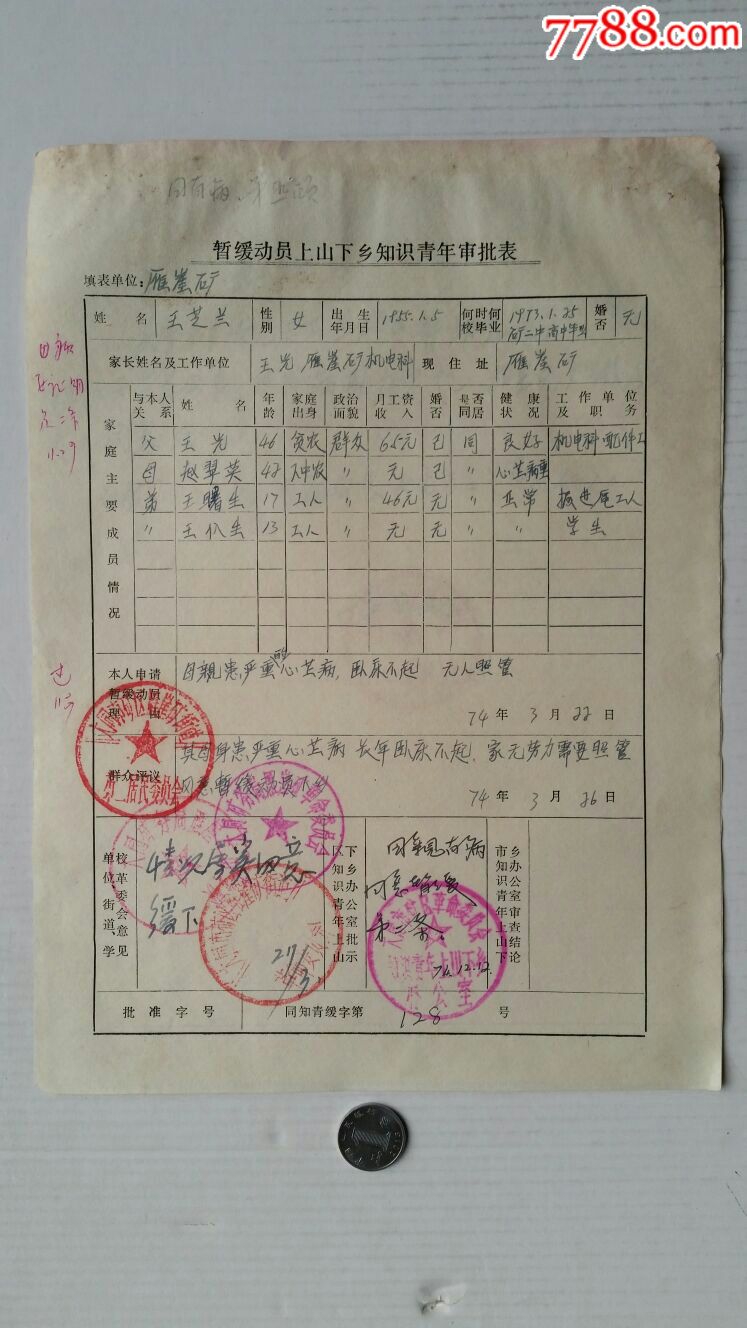 7788.com
暂缓动员上山下乡知识青年审批表
填表单位：雁崖矿
姓名 王芝兰 性别 女 出生年月日 1955.1.5 何时何校毕业 1973.1.25 矿二中高中毕业 婚否 无
家长姓名及工作单位 王光 雁崖矿机电科 现住址 雁崖矿
家庭主要成员情况
与本人关系 姓名 年龄 家庭出身 政治面貌 月工资收入 婚否 是否同居 健康状况 工作单位及职务
父 王光 46 贫农 群众 65元 已 同 良好 机电科配件工
母 赵翠英 42 下中农 〃 无 已 〃 心芷病重
弟 王曙生 17 工人 〃 46元 无 〃 正常 掘进尾工人
〃 王 生 13 工人 〃 无 无 〃 〃 学生
本人申请暂缓动员理由
母親患严重的心芷病，卧床不起 无人照管
74年3月22日
群众评议
其母身患严重心芷病 长年卧床不起、家无劳力需要照管
同意暂缓动员下乡
74年3月26日
单位、街道、学校革委会意见
情况属实同意
缓下
27/3
区知识青年上山下乡办公室批示
因母亲有病
同意暂缓
第二条
74.12.12
市知识青年上山下乡办公室审查结论
第二居民委员会
知识青年上山下乡
办公室
批准字号 同知青缓字第 128 号